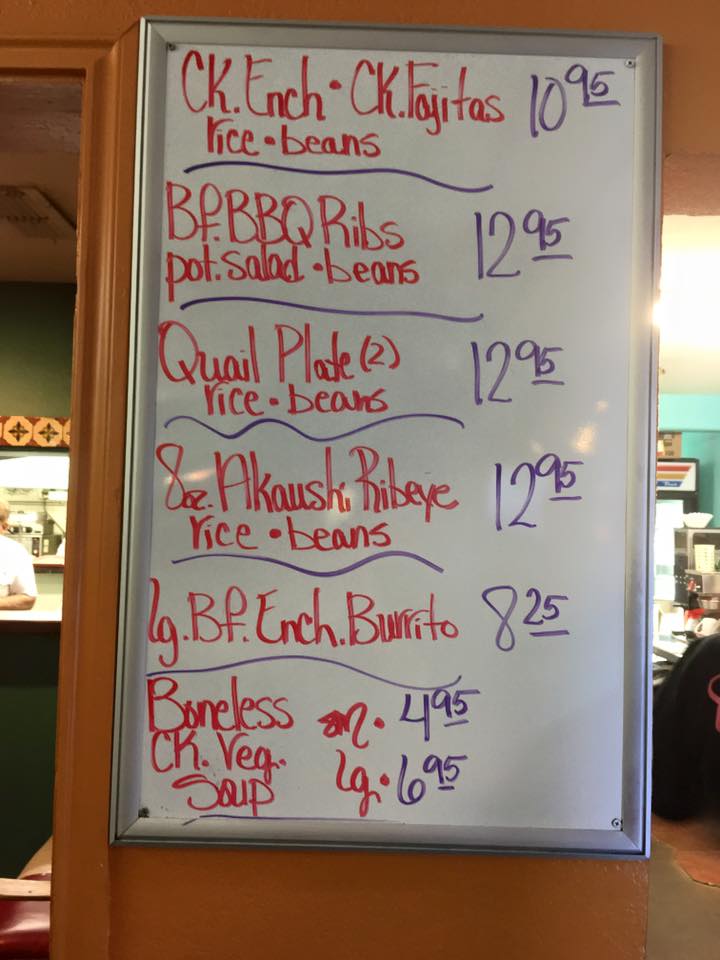 CK.Ench • CK.Fajitas 10 95
rice • beans
Bf.BBQ Ribs
pot.salad • beans 12 95
Quail Plate (2) 12 95
rice • beans
8oz. Akaushi Ribeye 12 95
rice • beans
lg. Bf. Ench. Burrito 8 25
Boneless sm. 4 95
CK. Veg. lg. 6 95
Soup